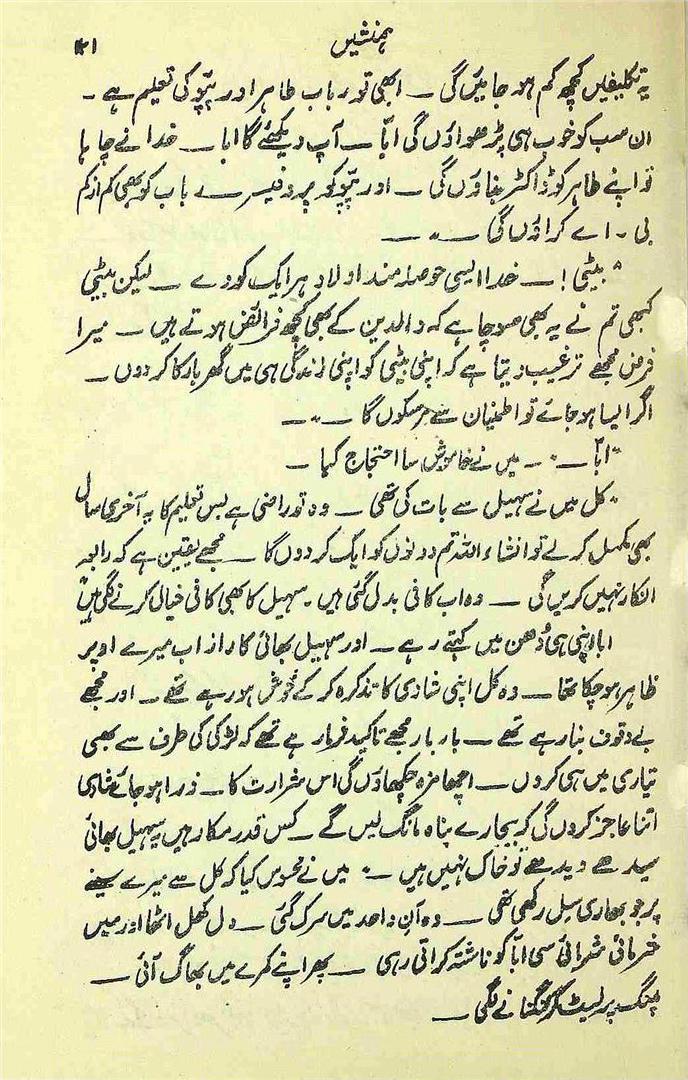 ہمنشیں
۱۴۱
یہ تکلیفیں کچھ کم ہو جائیں گی — ابھی تو رباب طاہر اور پپّو کی تعلیم ہے -
ان سب کو خوب ہی پڑھواؤں گی ابّا — آپ دیکھئے گا ابا — خدا نے چاہا
تو اپنے طاہر کو ڈاکٹر بناؤں گی — اور پپّو کو پروفیسر رباب کو بھی کم از کم
بی - اے کراؤں گی) — "—
"بیٹی! — خدا ایسی حوصلہ مند اولاد ہر ایک کو دے — لیکن بیٹی
کبھی تم نے یہ بھی سوچا ہے کہ والدین کے بھی کچھ فرائض ہوتے ہیں — میرا
فرض مجھے ترغیب دیتا ہے کہ اپنی بیٹی کو اپنی زندگی ہی میں گھر بار کا کر دوں —
اگر ایسا ہو جائے تو اطمینان سے مر سکوں گا — "—
"ابّا — "— میں نے خاموش سا احتجاج کیا —
"کل میں نے سہیل سے بات کی تھی — وہ تو راضی ہے بس تعلیم کا یہ آخری سال
بھی مکمل کر لے تو انشاء اللہ تم دونوں کو ایک کر دوں گا — مجھے یقین ہے کہ رابعہ
انکار نہیں کریں گی — وہ اب کافی بدل گئی ہیں - سہیل کا بھی کافی خیال کرنے لگی ہیں"
ابا اپنی ہی دُھن میں کہتے رہے — اور سہیل بھائی کا راز اب میرے اوپر
ظاہر ہو چکا تھا — وہ کل اپنی شادی کا تذکرہ کر کے خوش ہو رہے تھے — اور مجھے
بے وقوف بنا رہے تھے — بار بار مجھے تاکید فرما رہے تھے کہ لڑکی کی طرف سے بھی
تیاری میں ہی کروں — اچھا مزہ چکھاؤں گی اس شرارت کا — ذرا ہو جائے شادی
اتنا عاجز کروں گی کہ بیچارے پناہ مانگ لیں گے — کس قدر مکار ہیں یہ سہیل بھائی
سیدھے ویدھے تو خاک نہیں ہیں — " میں نے محسوس کیا کہ کل سے میرے سینے
پر جو بھاری سیل رکھی تھی — وہ آنِ واحد میں سرک گئی — دل کھل اٹھا اور میں
شرمائی شرمائی سی ابّا کو ناشتہ کراتی رہی — پھر اپنے کمرے میں بھاگ آئی —
پلنگ پر لیٹ کر گنگنانے لگی —